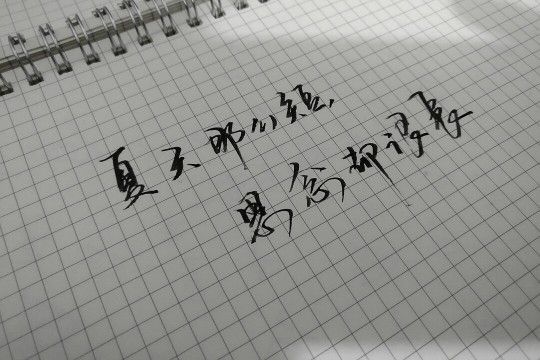 夏天那么短
思念却很長